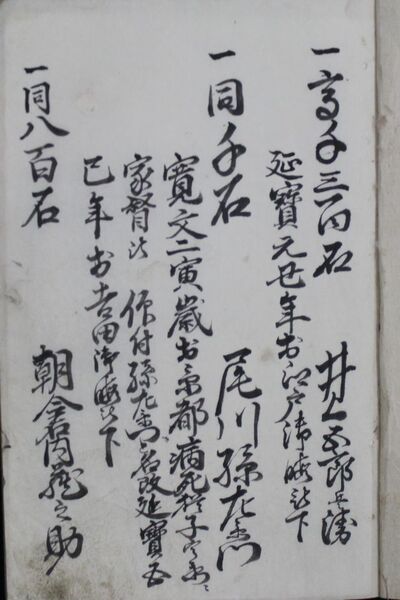 一高千三百石 井上五郎兵衛
延寶元丑年於江戸御暇被下
一同千石 尾川孫左衛門
寛文二寅歳於京都病死
家督被 仰付孫左衛門名改延寶五
巳年於吉田御暇被下
一同八百石 朝倉内蔵之助